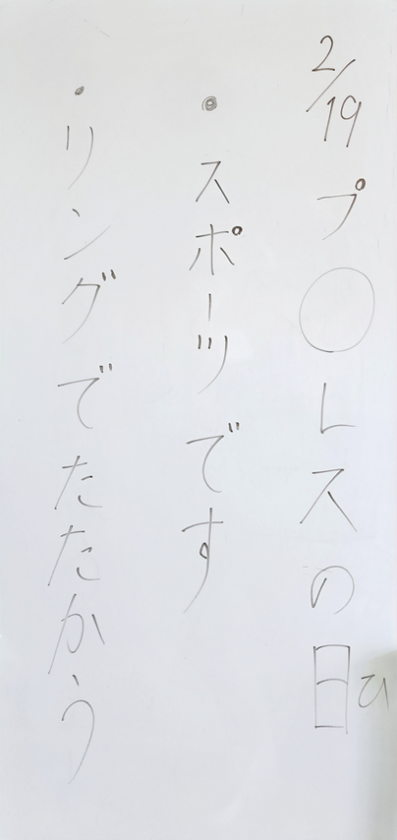 2/19 プ◯レスの日ひ
・スポーツです
・リングでたたかう